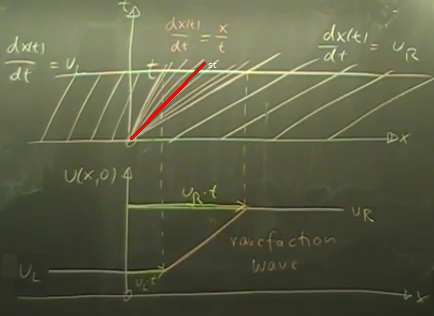 t
dx(t)/dt = u_L
dx(t)/dt = x/t
dx(t)/dt = u_R
t
st
x
U(x,0)
u_R·t
u_R
rarefaction
wave
u_L
u_L·t
0
x